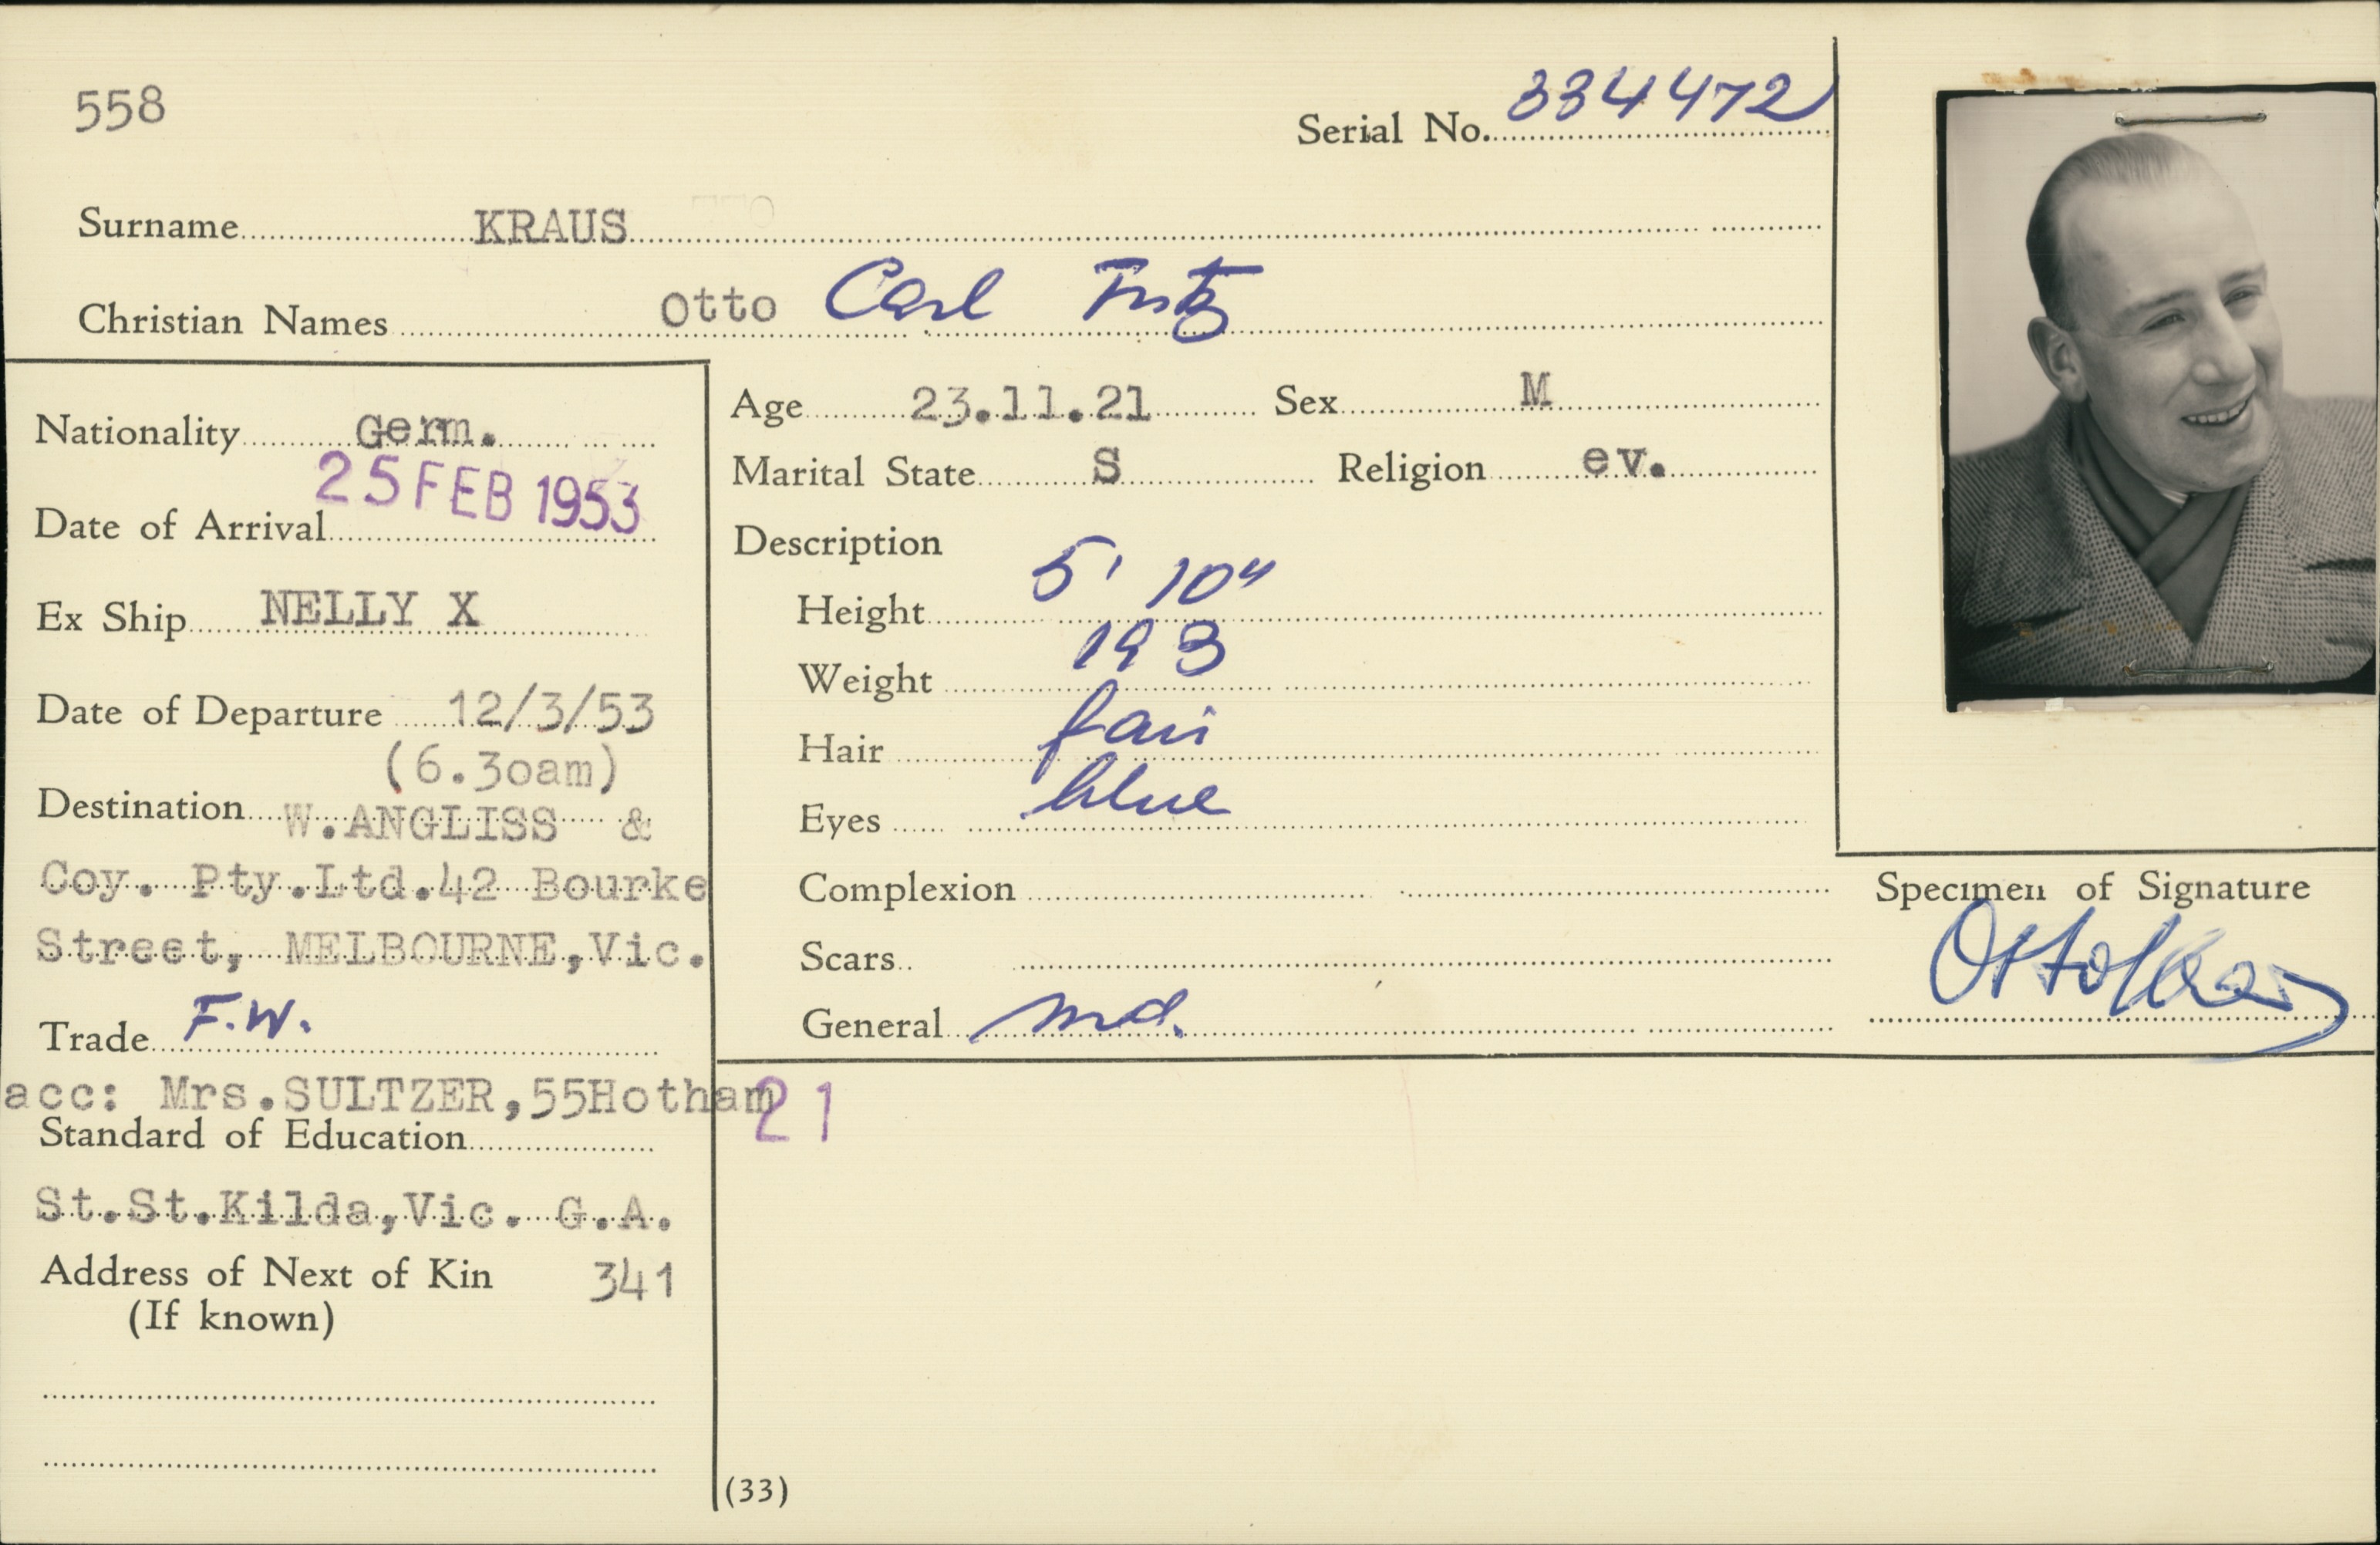 558
Serial No. 334472
Surname KRAUS
Christian Names Otto Carl Fritz
Nationality Germ.
Date of Arrival 25 FEB 1953
Ex Ship NELLY X
Date of Departure 12/3/53
(6.3oam)
Destination W.ANGLISS &
Coy. Pty.Ltd.42 Bourke
Street, MELBOURNE,Vic.
Trade F.W.
acc: Mrs.SULTZER,55Hotham
Standard of Education
St.St.Kilda,Vic. G.A.
Address of Next of Kin 341
(If known)
Age 23.11.21 Sex M
Marital State S Religion ev.
Description
Height 5' 10"
Weight 193
Hair fair
Eyes blue
Complexion
Scars
General md.
21
(33)
Specimen of Signature
Otto Kraus